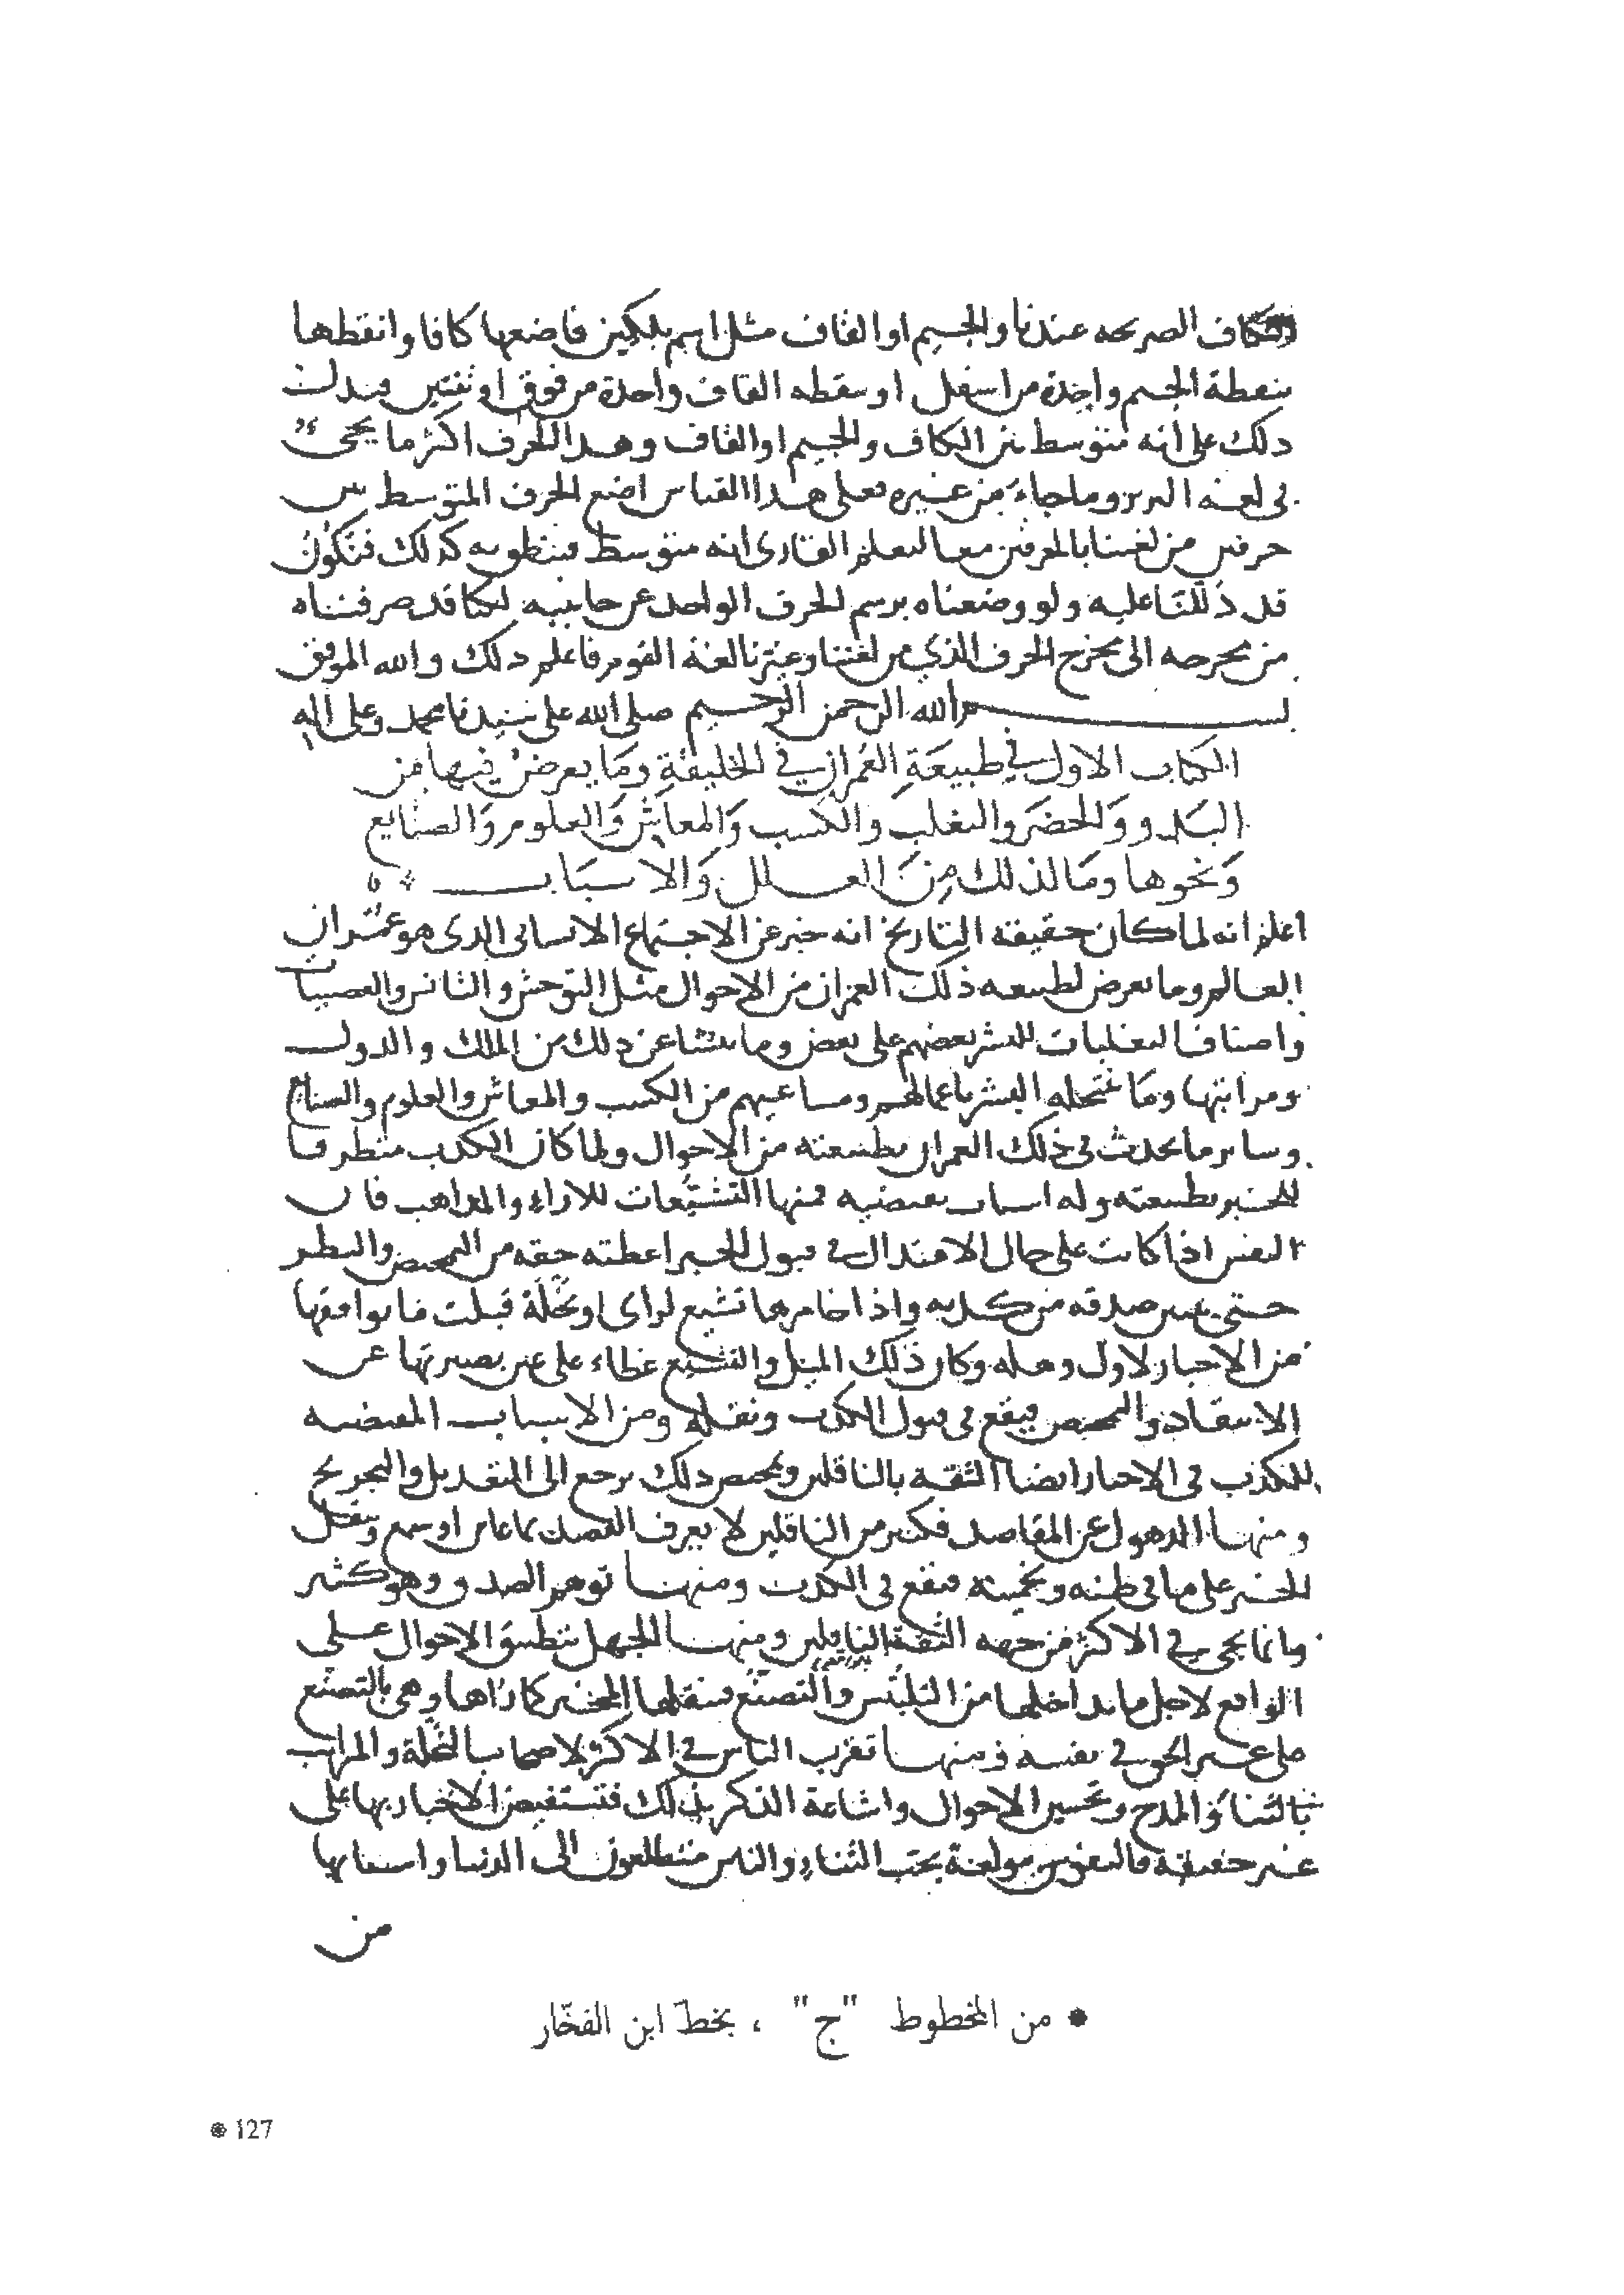 الكاف الصريحه عندنا والجيم او القاف مثل اسم بلكين فاضعها كافا وانقطها
بنقطة الجيم واحدة من اسفل او بنقطه القاف واحدة من فوق او ثنتين فيدل
ذلك على انه متوسط بين الكاف والجيم او القاف وهذا الحرف اكثر ما يجئ
في لغه البربر وما جاء من غيره فعلى هذا القياس اضع الحرف المتوسط بين
حرفين من لغتنا بالحرفين معا ليعلم القارى انه متوسط فينطق به كذلك فنكون
قد دللنا عليه ولو وضعناه برسم الحرف الواحد عن جانبيه لكنا قد صرفناه
من مخرجه الى مخرج الحرف الذي من لغتنا وغيرنا لغة القوم فاعلم ذلك والله الموفق
بسم الله الرحمن الرحيم صلى الله على سيدنا محمد وعلى اله
الكتاب الاول في طبيعة العمران في الخليقة وما يعرض فيها من
البدو والحضر والتغلب والكسب والمعاش والعلوم والصنايع
ونحوها وما لذلك من العلل والاسباب
اعلم انه لما كان حقيقة التاريخ انه خبر عن الاجتماع الانساني الذي هو عمران
العالم وما يعرض لطبيعه ذلك العمران من الاحوال مثل التوحش والتانس والعصبيات
واصناف التغلبات للبشر بعضهم على بعض وما ينشا عن ذلك من الملك والدول
ومراتبها وما ينتحله البشر باعمالهم ومساعيهم من الكسب والمعاش والعلوم والصنايع
وساير ما يحدث في ذلك العمران بطبيعته من الاحوال ولما كان الكذب متطرقا
للخبر بطبيعته وله اسباب تقتضيه فمنها التشيعات للاراء والمذاهب فان
النفس اذا كانت على حال الاعتدال في قبول الخبر اعطته حقه من التمحيص والنظر
حتى يتبين صدقه من كذبه واذا خامرها تشيع لراى او نحلة قبلت ما يوافقها
من الاخبار لاول وهله وكان ذلك الميل والتشيع غطاء على عين بصيرتها عن
الانتقاد والتمحيص فيقع في قبول الكذب ونقله ومن الاسباب المقتضيه
للكذب في الاخبار ايضا الثقة بالناقلين وتمحيص ذلك يرجع الى التعديل والتجريح
ومنها الذهول عن المقاصد فكثير من الناقلين لا يعرف القصد بما عاين او سمع وينقل
الخبر على ما في ظنه وتخمينه فيقع في الكذب ومنها توهم الصدق وهو كثير
وانما يجي في الاكثر من جهه الثقة بالناقلين ومنها الجهل بتطبيق الاحوال على
الواقع لاجل ما يداخلها من التلبيس والتصنع فينقلها المخبر كما رآها وهي بالتصنع
على غير الحق في نفسه ومنها تقرب الناس في الاكثر لاصحاب التجلة والمراتب
بالثناء والمدح وتحسين الاحوال واشاعة الذكر بذلك فتستفيض الاخبار بها على
غير حقيقة فالنفوس مولعة بحب الثناء والناس متطلعون الى الدنيا واسبابها
من
❋ من المخطوط "ج" ، بخطّ ابن الفخّار
❋ 127